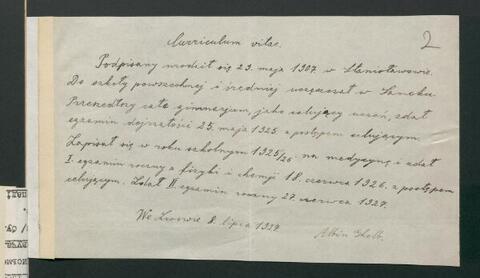 2
Curriculum vitae.
Podpisany urodził się 23. maja 1907. w Stanisławowie.
Do szkoły powszechnej i średniej uczęszczał w Sanoku
Przeszedłszy całe gimnazjum, jako celujący uczeń, zdał
egzamin dojrzałości 25. maja 1925 z postępem celującym.
Zapisał się w roku szkolnym 1925/26 na medycynę i zdał
I. egzamin roczny z fizyki i chemji 18. czerwca 1926. z postępem
celującym. Zdał II. egzamin roczny 27. czerwca 1927.
We Lwowie 8. lipca
Albin